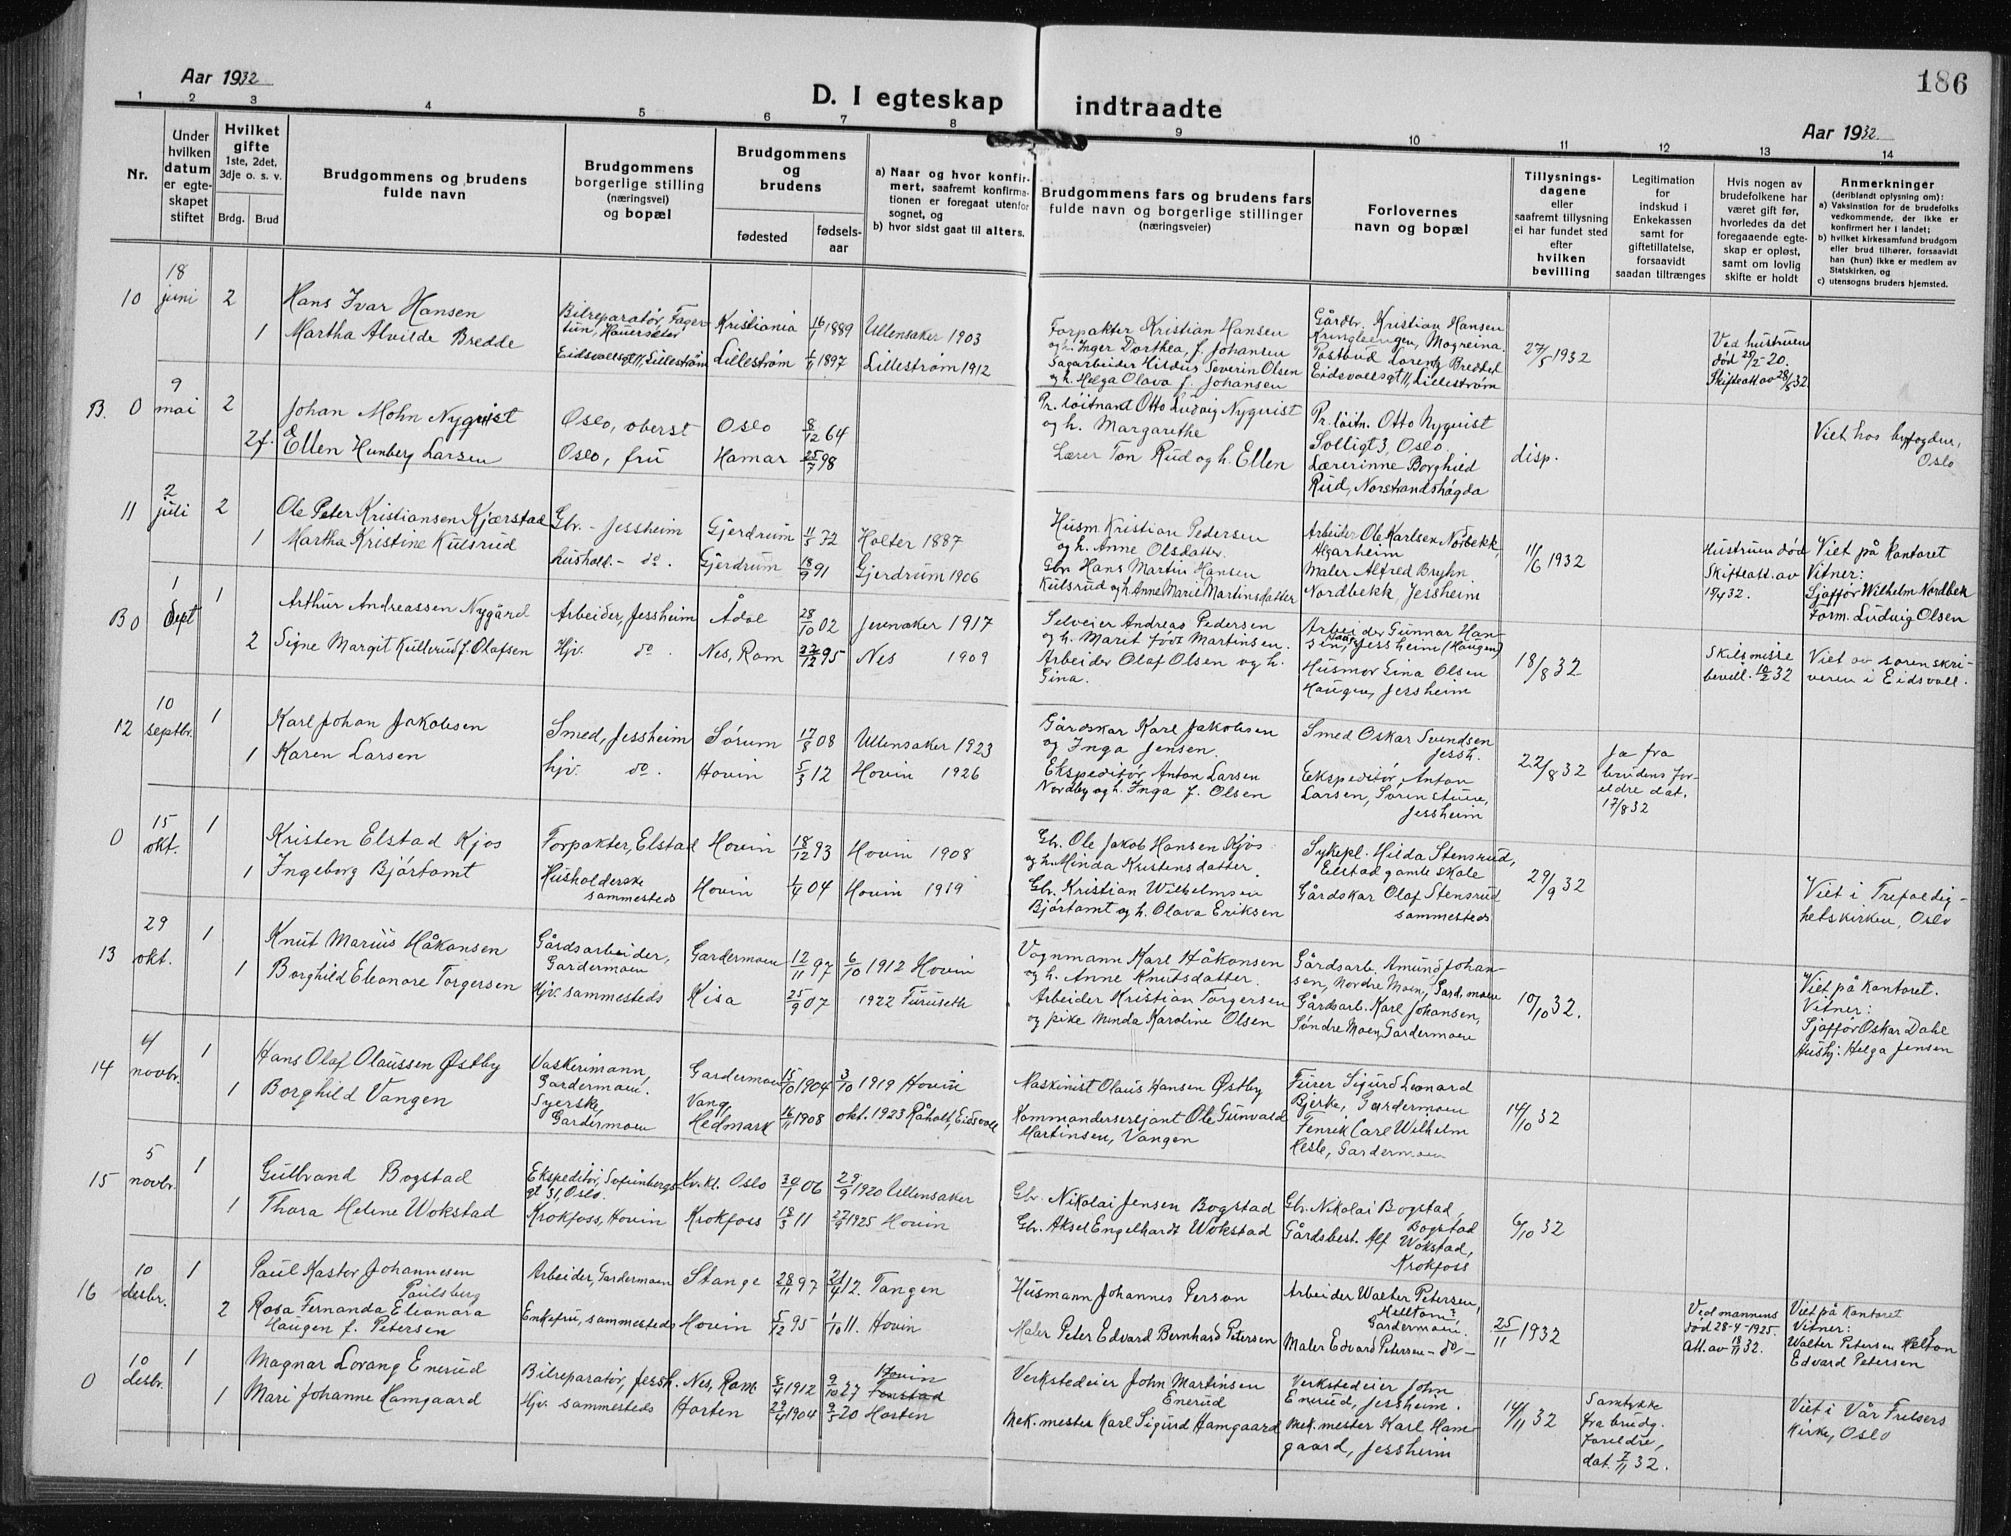 186
Aar 1932
D. I egteskap indtraadte
Aar 1932
1 2 3 4 5 6 7 8 9 10 11 12 13 14
Nr.
Under hvilken datum er egteskapet stiftet
Hvilket gifte 1ste, 2det, 3dje o. s. v.
Brdg. Brud
Brudgommens og brudens fulde navn
Brudgommens borgerlige stilling (næringsvei) og bopæl
Brudgommens og brudens
fødested
fødsels-aar
a) Naar og hvor konfirmert, saafremt konfirmationen er foregaat utenfor sognet, og
b) hvor sidst gaat til alters.
Brudgommens fars og brudens fars fulde navn og borgerlige stillinger (næringsveier)
Forlovernes navn og bopæl
Tillysningsdagene eller saafremt tillysning ei har fundet sted efter hvilken bevilling
Legitimation for indskud i Enkekassen samt for giftetillatelse, forsaavidt saadan tiltrænges
Hvis nogen av brudefolkene har været gift før, hvorledes da det foregaaende egteskap er opløst, samt om lovlig skifte er holdt
Anmerkninger (deriblandt oplysning om):
a) Vaksination for de brudefolks vedkommende, der ikke er konfirmert her i landet;
b) hvilket kirkesamfund brudgom eller brud tilhører, forsaavidt han (hun) ikke er medlem av Statskirken, og
c) utensogns bruders hjemsted.
10 18 juni 2 Hans Ivar Hansen
Bilreparatør, Fagertun, Hauerseter
Kristiania 16/1 1889 Ullensaker 1903
Forpakter Kristian Hansen og h. Inger Dorthea, f. Johansen
Gårdbr. Kristian Hansen Kringleengen, Mogreina
1 Martha Alvilde Bredde
Eidsvollsgt 11, Lillestrøm
Lillestrøm 1897 Lillestrøm 1912
Sagarbeider Hildus Severin Olsen og h. Helga Olava f. Johansen
Postbud Lorentz Bredde Eidsvollsgt 11, Lillestrøm
27/5 1932
Ved hustruens død 29/2-20. Skifteatt av 28/5 32
B. 0 9 mai 2 Johan Mohn Nyqvist
Oslo, oberst Oslo 8/12 64
Pr. løitnant Otto Ludvig Nyqvist og h. Margarethe
Pr. løitn. Otto Nyqvist Solligt 3, Oslo
2 f. Ellen Hunberg Larsen
Oslo, fru Hamar 25/7 98
Lærer Ton Rud og h. Ellen
Lærerinne Borghild Rud, Norstrandshøgda
disp.
Viet hos byfogden, Oslo
11 2 juli 2 Ole Peter Kristiansen Kjærstad
Gbr. - Jessheim Gjerdrum 11/5 72 Holter 1887
Husm Kristian Pedersen og h. Anne Olsdatter
Arbeider Ole Karlsen Norbekk, Algarheim
1 Martha Kristine Kulsrud
hushold. - do. Gjerdrum 18/9 91 Gjerdrum 1906
Gbr Hans Martin Hansen Kulsrud og h. Anne Marie Martinsdatter
Maler Alfred Bryhn Nordbekk, Jessheim
11/6 1932
Hustruens død Skifteatt. av
Viet på Kontoret Vitner: Sjåffør Wilhelm Nordbek Form. Ludvig Olsen
B 0 1 sept 1 Arthur Andreassen Nygård
Arbeider, Jessheim Ådal 28/10 02 Jevnaker 1917
Selveier Andreas Pedersen og h. Marit født Martinsen.
Arbeider Gunnar Hansen, Jessheim (Haugen)
2 Signe Margit Kullerud f. Olafsen
Hjv. do. Nes, Rom 22/12 95 Nes 1909
Arbeider Olaf Olsen og h. Gina.
Husmor Gina Olsen Haugen, Jessheim
18/8 32
Skilsmisse bevill. 32
Viet av sorenskriveren i Eidsvoll.
12 10 septbr. 1 Karl Johan Jakobsen
Smed, Jessheim Sørum 17/8 08 Ullensaker 1923
Gårdskar Karl Jakobsen og Inga Jensen.
Smed Oskar Svendsen Jessh.
1 Karen Larsen
hjv. do. Hovin 5/3 12 Hovin 1926
Ekspeditør Anton Larsen Nordby og h. Inga f. Olsen
Ekspeditør Anton Larsen, Sørenstuen, Jessheim
22/8 32
Ja fra brudens foreldre dat. 17/8 32
0 15 okt. 1 Kristen Elstad Kjos
Forpakter, Elstad Hovin 18/12 93 Hovin 1908
Gbr. Ole Jakob Hansen Kjos og h. Minda Kristensdatter.
Sykepl. Hilda Stensrud, Elstad gamle skole
1 Ingeborg Bjørtomt
Husholderske sammesteds Hovin 04 Hovin 1919
Gbr. Kristian Wilhelmsen Bjørtomt og h. Olava Eriksen
Gårdskar Olaf Stensrud sammesteds
29/9 32
Viet i Trefoldighetskirken, Oslo
13 29 okt. 1 Knut Marius Håkonsen
Gårdsarbeider, Gardermoen Gardermoen 12/11 97 6/10 1912 Hovin
Vognmann Karl Håkonsen og h. Anne Knutsdatter.
Gårdsarb. Amund Johansen, Nordre Moen, Gard.moen
1 Borghild Eleonore Torgersen
Hjv. sammesteds Kisa 25/9 07 1922 Furuseth
Arbeider Kristian Torgersen og pike Minda Karoline Olsen
Gårdsarb. Karl Johansen, Søndre Moen, Gardermoen
10/10 32.
Viet på Kontoret. Vitner: Sjåffør Oskar Dahl Hushj: Helga Jensen
14 4 novbr. 1 Hans Olaf Olaussen Østby
Vaskerimann, Gardermoen, Gardermoen 15/10 1904 3/10 1919 Hovin
Maskinist Olaus Hansen Østby
Furer Sigurd Leonard Bjerke, Gardermoen
1 Borghild Vangen
Syerske, Gardermoen Vang, Hedmark 16/11 1908 okt. 1923 Råholt, Eidsvoll
Kommandersersjant Ole Gunvald Martinsen, Vangen
Fenrik Carl Wilhelm Hesle, Gardermoen
14/10 32
15 5 novbr. 1 Gulbrand Bogstad
Ekspeditør, Sofienbergsgt 31, Oslo. Kv.kl. Oslo 30/1 06 29/9 1920 Ullensaker
Gbr. Nikolai Jensen Bogstad
Gbr. Nikolai Bogstad, Bogstad
1 Thora Helene Wokstad
Krokfoss, Hovin Krokfoss 18/3 11 27/9 1925 Hovin
Gbr. Aksel Engelhardt Wokstad
Gårdsbest. Alf Wokstad, Krokfoss
6/10 32
16 10 desbr. 1 Paul Kastor Johannesen Paulsberg
Arbeider, Gardermoen Stange 28/11 97 21/4 12. Tangen
Husmann Johannes Person
Arbeider Walter Petersen, Gardermoen.
2 Rosa Fernanda Eleonora Haugen f. Petersen
Enkefru, sammesteds Hovin 5/12 95 1/10 11. Hovin
Maler Peter Edvard Bernhard Petersen
Maler Edvard Petersen - do -
25/11 1932
Ved mannens død 28-4-1925. Att. av 18/11 32.
Viet på Kontoret Vitner: Walter Petersen Helton Edvard Petersen
0 10 desbr. 1 Magnar Lorang Enerud
Bilreparatør, Jessh. Nes, Rom. 8/4 1912 9/10 27 Hovin
Verkstedeier John Martinsen Enerud
Verkstedeier John Enerud, Jessheim.
1 Mari Johanne Hamgaard
Hjv. sammesteds Horten 29/4 1904 9/5 20 Horten
Mek. mester Karl Sigurd Hamgaard
Mek. mester Karl Hamgaard, Jessheim
14/11 32
Samtykke fra brudg. foreldre, dat. 7/11 32.
Viet i Vår Frelsers Kirke, Oslo